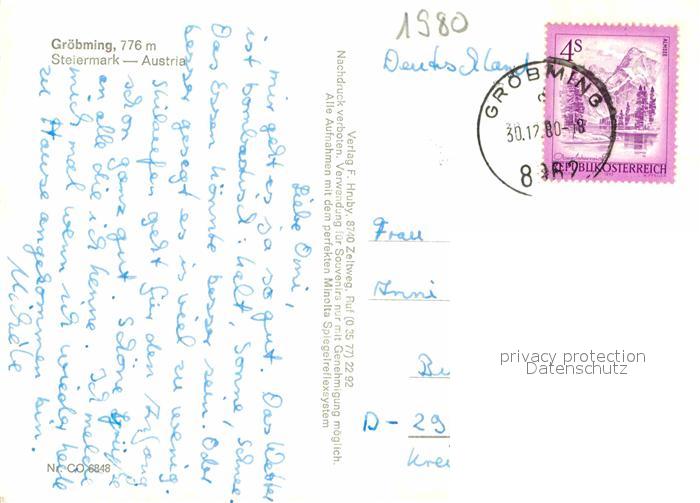 Gröbming, 776 m
Steiermark — Austria
1980
Deutschland
4S
ALMSEE
GRÖBMING
30.12.80-18
REPUBLIK ÖSTERREICH
Liebe Omi,
mir geht es ja so gut. Das Wetter
ist bombastisch: kalt, Sonne, Schnee
Das Essen könnte besser sein. Oder
besser gesagt es is viel zu wenig.
Skilaufen geht für den Anfang
schon ganz gut. Schöne Grüße
an alle die ich kenne. Ich melde
mich mal wenn ich wieder heile
zu Hause angekommen bin.
Verlag F. Hruby, 8740 Zeltweg, Ruf (0 35 77) 22 92
Nachdruck verboten. Verwendung für Souvenirs nur mit Genehmigung möglich.
Alle Aufnahmen mit dem perfekten Minolta Spiegelreflexsystem
Frau
Anni
Be
D - 29
Krei
privacy protection
Datenschutz
Nr. CO 6848